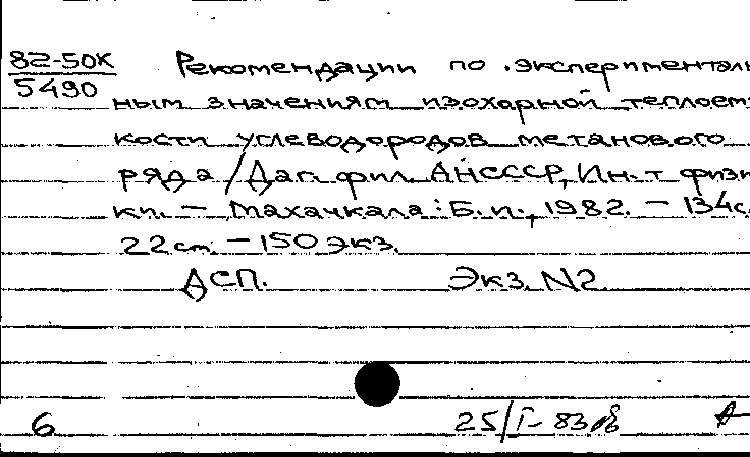 82-50К
5490
Рекомендации по эксперименталь
ным значениям изохорной теплоем
кости углеводородов метанового
ряда / Даг. фил. АН СССР, Ин-т физи
ки. - Махачкала: Б. и., 1982. - 134 с.
22 см. - 150 экз.
ДСП. Экз. N2.
6 25/I-83